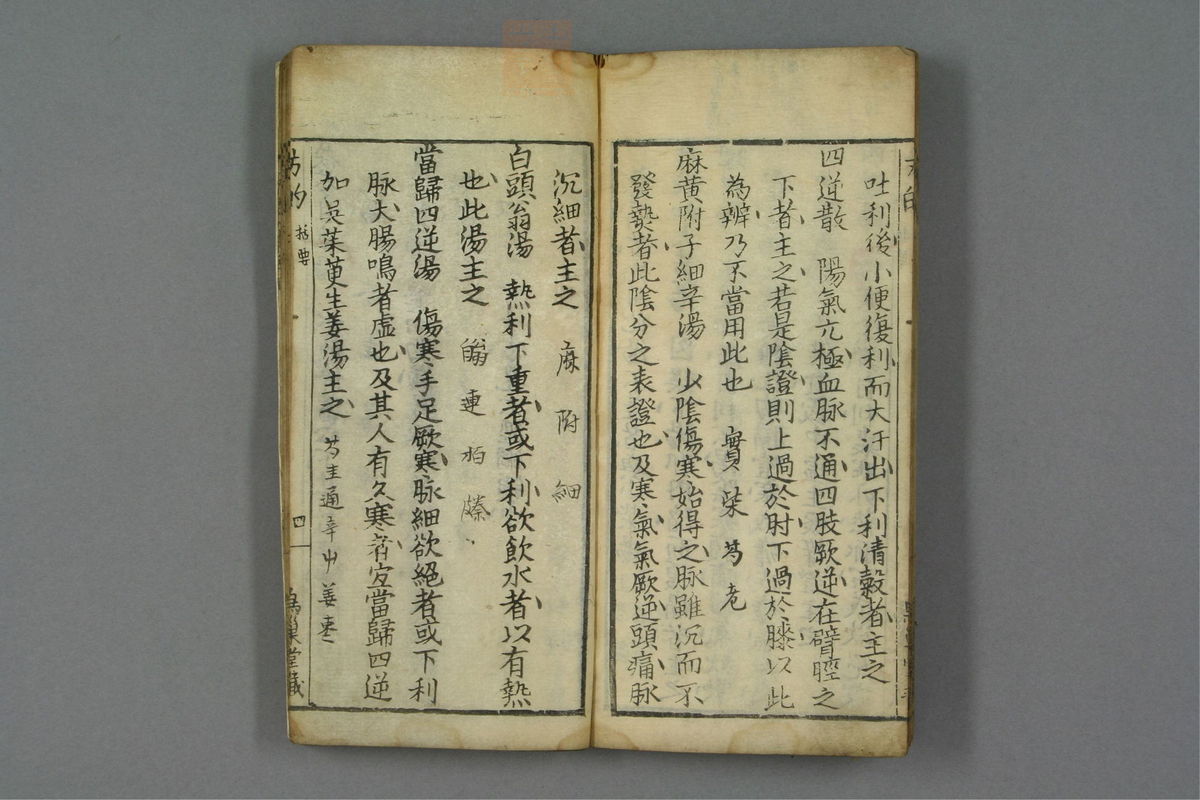 吐利後小便復利而大汗出下利清穀者主之
四逆散　陽氣亢極血脉不通四肢厥逆在臂脛之
下者主之若是陰證則上過於肘下過於膝以此
為辨乃不當用此也　實柴芎
麻黄附子細辛湯　少陰傷寒始得之脉雖沉而不
發𤍠者此陰分之表證也及寒氣氣厥逆頭痛脉
沉細者主之　麻附細
白頭翁湯　熱利下重者或下利欲飲水者以有熱
也此湯主之　翁連栢
當歸四逆湯　傷寒手足厥寒脉細欲絕者或下利
脉大腸鳴者虛也及其人有久寒者宜當歸四逆
加吳茱萸生姜湯主之　通辛中姜棗
方的　指要　四　為巢堂藏